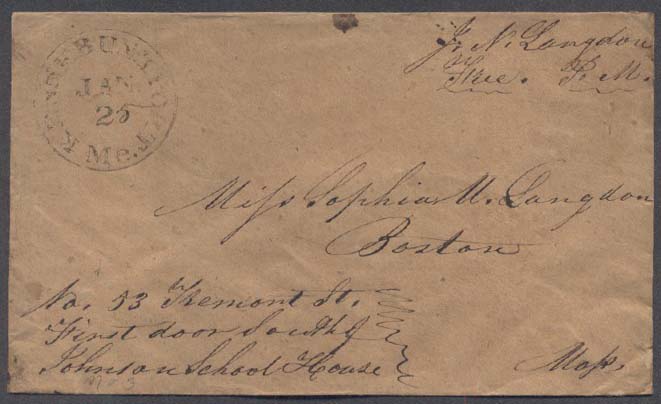 KENNEBUNKPORT
JAN
25
Me.
J. N. Langdon
Free. P. M.
Miss Sophia M. Langdon
Boston
No. 53 Tremont St.
First door South of
Johnson School House
Mass.